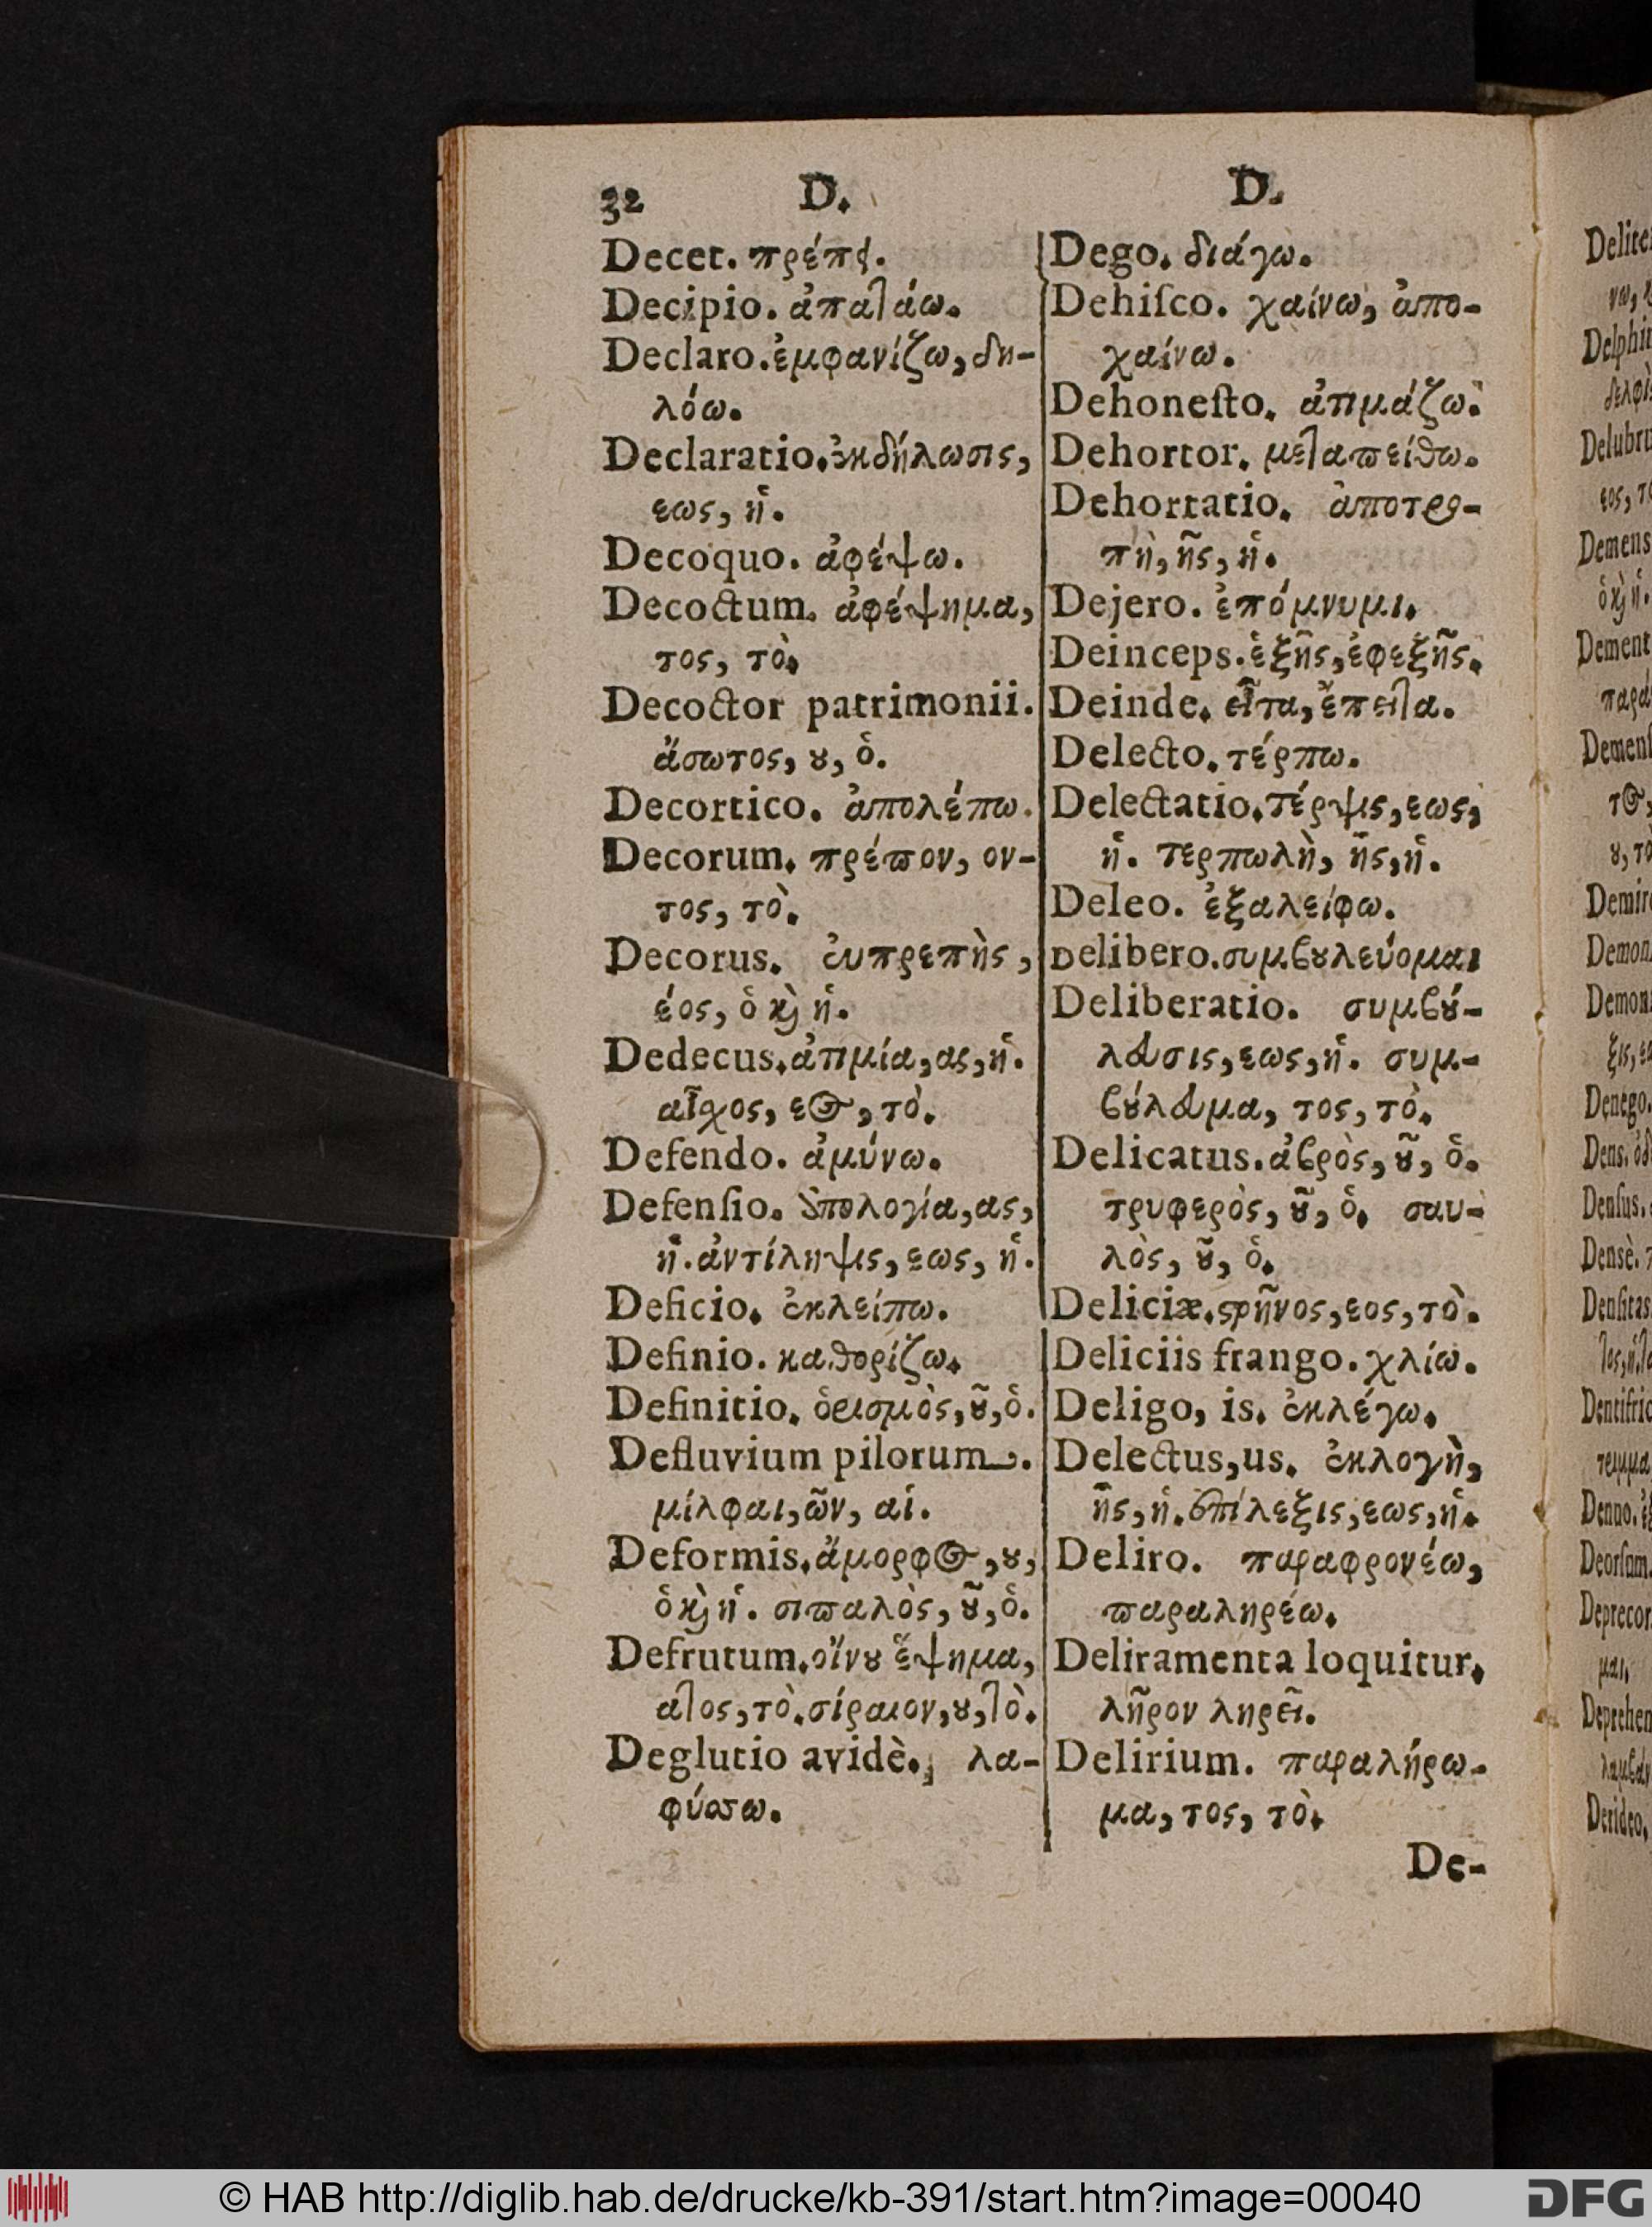 32 D. D.
Decet. πρέπει.
Decipio. ἀπατάω.
Declaro. ἐμφανίζω, δη-
λόω.
Declaratio. ἐκδήλωσις,
εως, ἡ.
Decoquo. ἀφέψω.
Decoctum. ἀφέψημα,
τος, τὸ.
Decoctor patrimonii.
ἄσωτος, ȣ, ὁ.
Decortico. ἀπολέπω.
Decorum. πρέπον, ον-
τος, τὸ.
Decorus. ἐυπρεπὴς,
έος, ὁ ϗ̀ ἡ.
Dedecus. ἀτιμία, ας, ἡ.
αἶχος, εος, τὸ.
Defendo. ἀμύνω.
Defenſio. ἀπολογία, ας,
ἡ. ἀντίληψις, εως, ἡ.
Deficio. ἐκλείπω.
Definio. καθορίζω.
Definitio. ὁρισμὸς, ȣ͂, ὁ.
Defluvium pilorum.
μίλφαι, ῶν, αἱ.
Deformis. ἄμορφος, ȣ,
ὁ ϗ̀ ἡ. σιπαλὸς, ȣ͂, ὁ.
Defrutum. οἴνȣ ἕψημα,
ατος, τὸ. σίραιον, ȣ, τὸ.
Deglutio avidè. λα-
φύσσω.
Dego. διάγω.
Dehiſco. χαίνω, ἀπο-
χαίνω.
Dehoneſto. ἀτιμάζω.
Dehortor. μεταπείθω.
Dehortatio. ἀποτρο-
πὴ, ῆς, ἡ.
Dejero. ἐπόμνυμι.
Deinceps. ἑξῆς, ἐφεξῆς.
Deinde. εἶτα, ἔπειτα.
Delecto. τέρπω.
Delectatio. τέρψις, εως,
ἡ. τερπωλὴ, ῆς, ἡ.
Deleo. ἐξαλείφω.
Delibero. συμβȣλεύομαι
Deliberatio. συμβȣ́-
λευσις, εως, ἡ. συμ-
βȣ́λευμα, τος, τὸ.
Delicatus. ἁβρὸς, ȣ͂, ὁ.
τρυφερὸς, ȣ͂, ὁ. σαυ-
λὸς, ȣ͂, ὁ.
Deliciæ. ϛρῆνος, εος, τὸ.
Deliciis frango. χλίω.
Deligo, is. ἐκλέγω.
Delectus, us. ἐκλογὴ,
ῆς, ἡ. ἐπίλεξις, εως, ἡ.
Deliro. παραφρονέω,
παραληρέω.
Deliramenta loquitur.
λῆρον ληρεῖ.
Delirium. παραλήρω-
μα, τος, τὸ.
De-
© HAB http://diglib.hab.de/drucke/kb-391/start.htm?image=00040
DFG